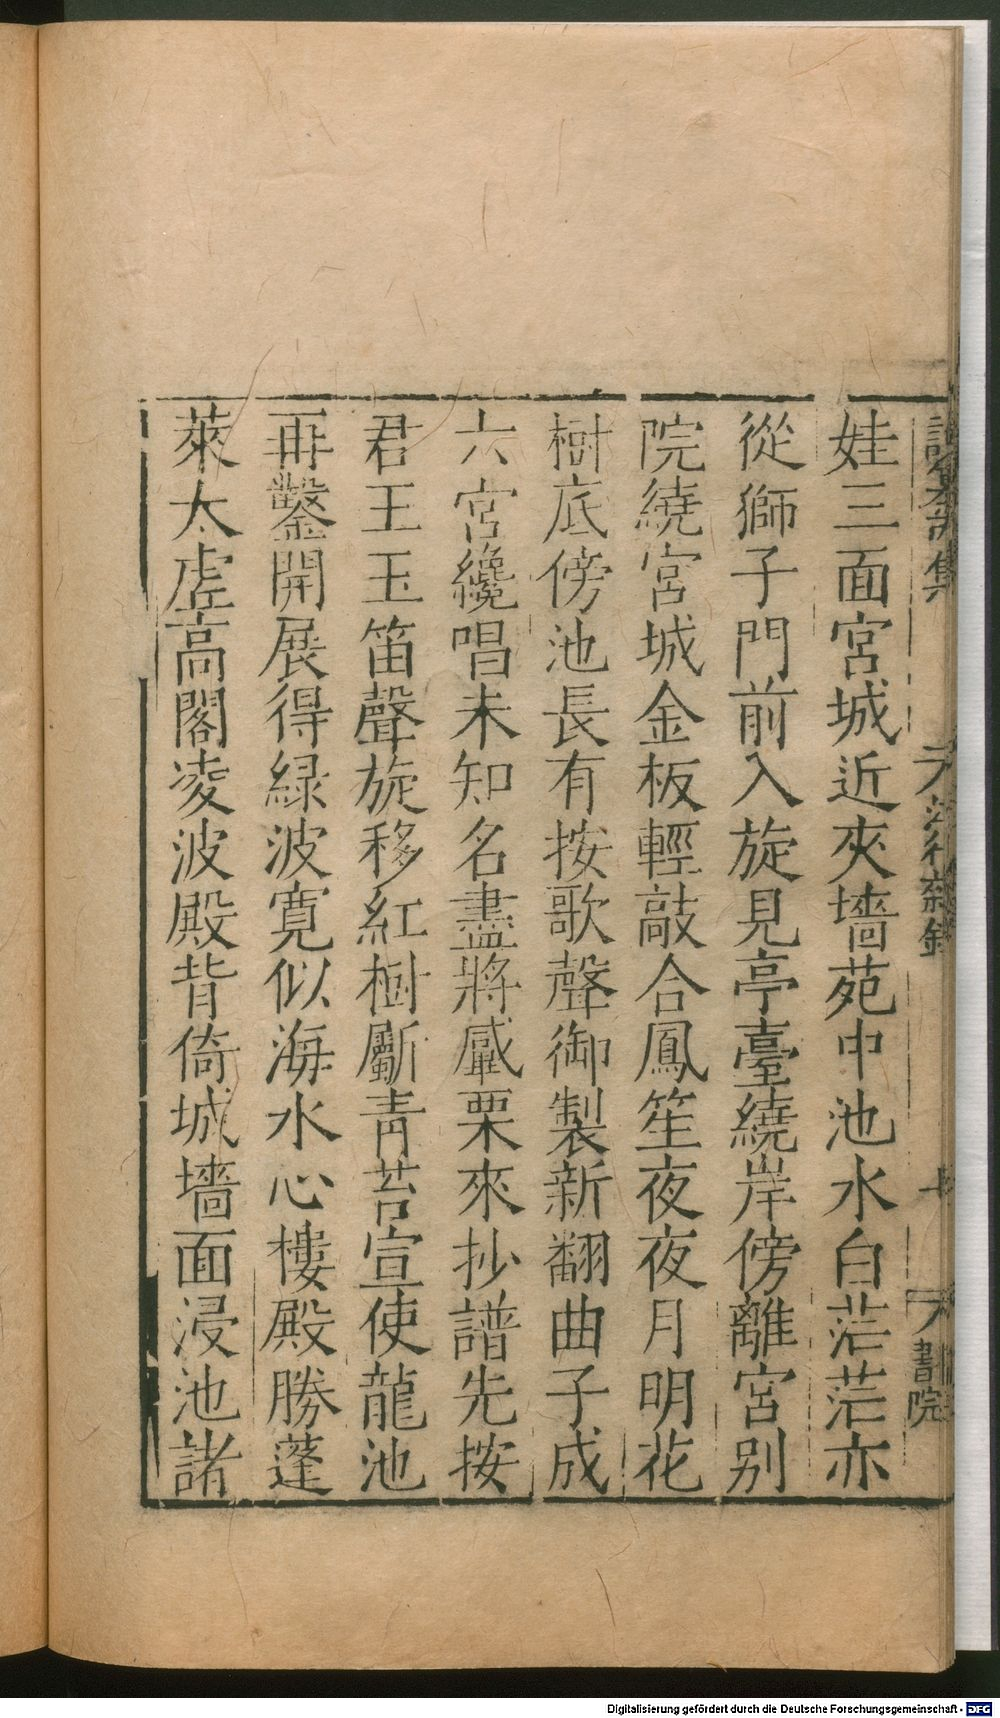 娃三面宮城近夾墻苑中池水白茫茫亦
從獅子門前入旋見亭臺繞岸傍離宮别
院繞宮城金板輕敲合鳳笙夜夜月明花
樹底傍池長有按歌聲御製新翻曲子成
六宮纔唱未知名盡將觱栗來抄譜先按
君王玉笛聲旋移紅樹斸青苔宣使龍池
再鑿開展得緑波寛似海水心樓殿勝蓬
萊太虛高閣凌波殿背倚城墻面浸池諸
集
書院
Digitalisierung gefördert durch die Deutsche Forschungsgemeinschaft - DFG